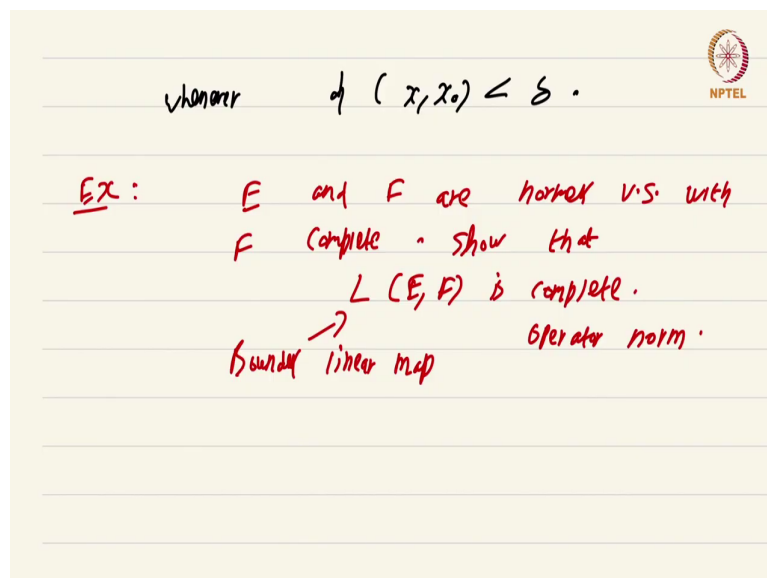 NPTEL
whenever d(x, x₀) < δ.
Ex: E and F are normed v.s. with
F complete. Show that
L(E, F) is complete.
operator norm.
Bounded linear map